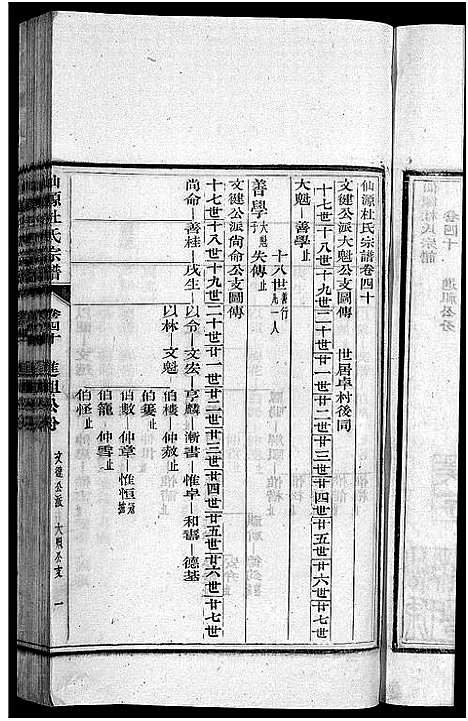 仙源杜氏宗譜卷四十
文健公派大魁公支圖傳　世居卓村後同
十七世十八世十九世二十世廿一世廿二世廿三世廿四世廿五世廿六世廿七世
大魁—善學止
十八世善行凡一人
善學大魁子失傳止
文健公派尚命公支圖傳
十七世十八世十九世二十世廿一世廿二世廿三世廿四世廿五世廿六世廿七世
尚命—善桂—戍生—以令—文宏—亨麟—漸書—惟卓—和壽—德基
以林—文魁　伯樓—仲敖止
伯㜫止
伯數　仲章—惟恒
伯龍　仲雪止
伯怪止
仙源杜氏宗譜
卷四十
進祖公分
文健公派　大魁公支　一
卷四十　進祖公分
仙源杜氏宗譜